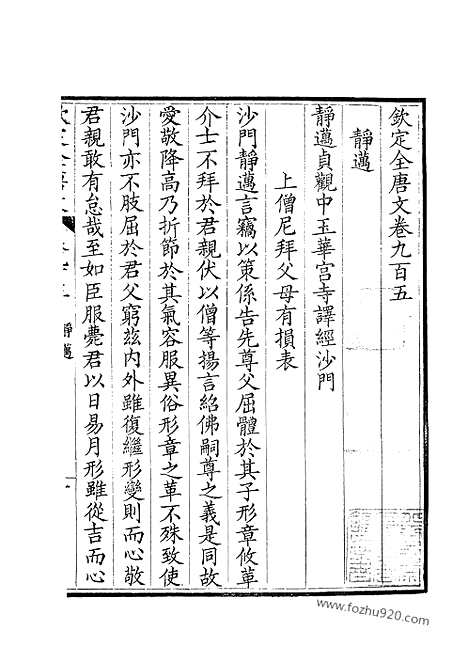 欽定全唐文卷九百五
靜邁
靜邁貞觀中玉華宮寺譯經沙門
上僧尼拜父母有損表
沙門靜邁言竊以策係告先尊父屈體於其子形章攸革
介士不拜於君親伏以僧等揚言紹佛嗣尊之義是同故
愛敬降高乃折節於其氣容服異俗形章之革不殊致使
沙門亦不肢屈於君父窮茲內外雖復繼形變則而心敬
君親敢有怠哉至如臣服薨君以日易月形雖從吉而心
靜邁
www.fozhu920.com